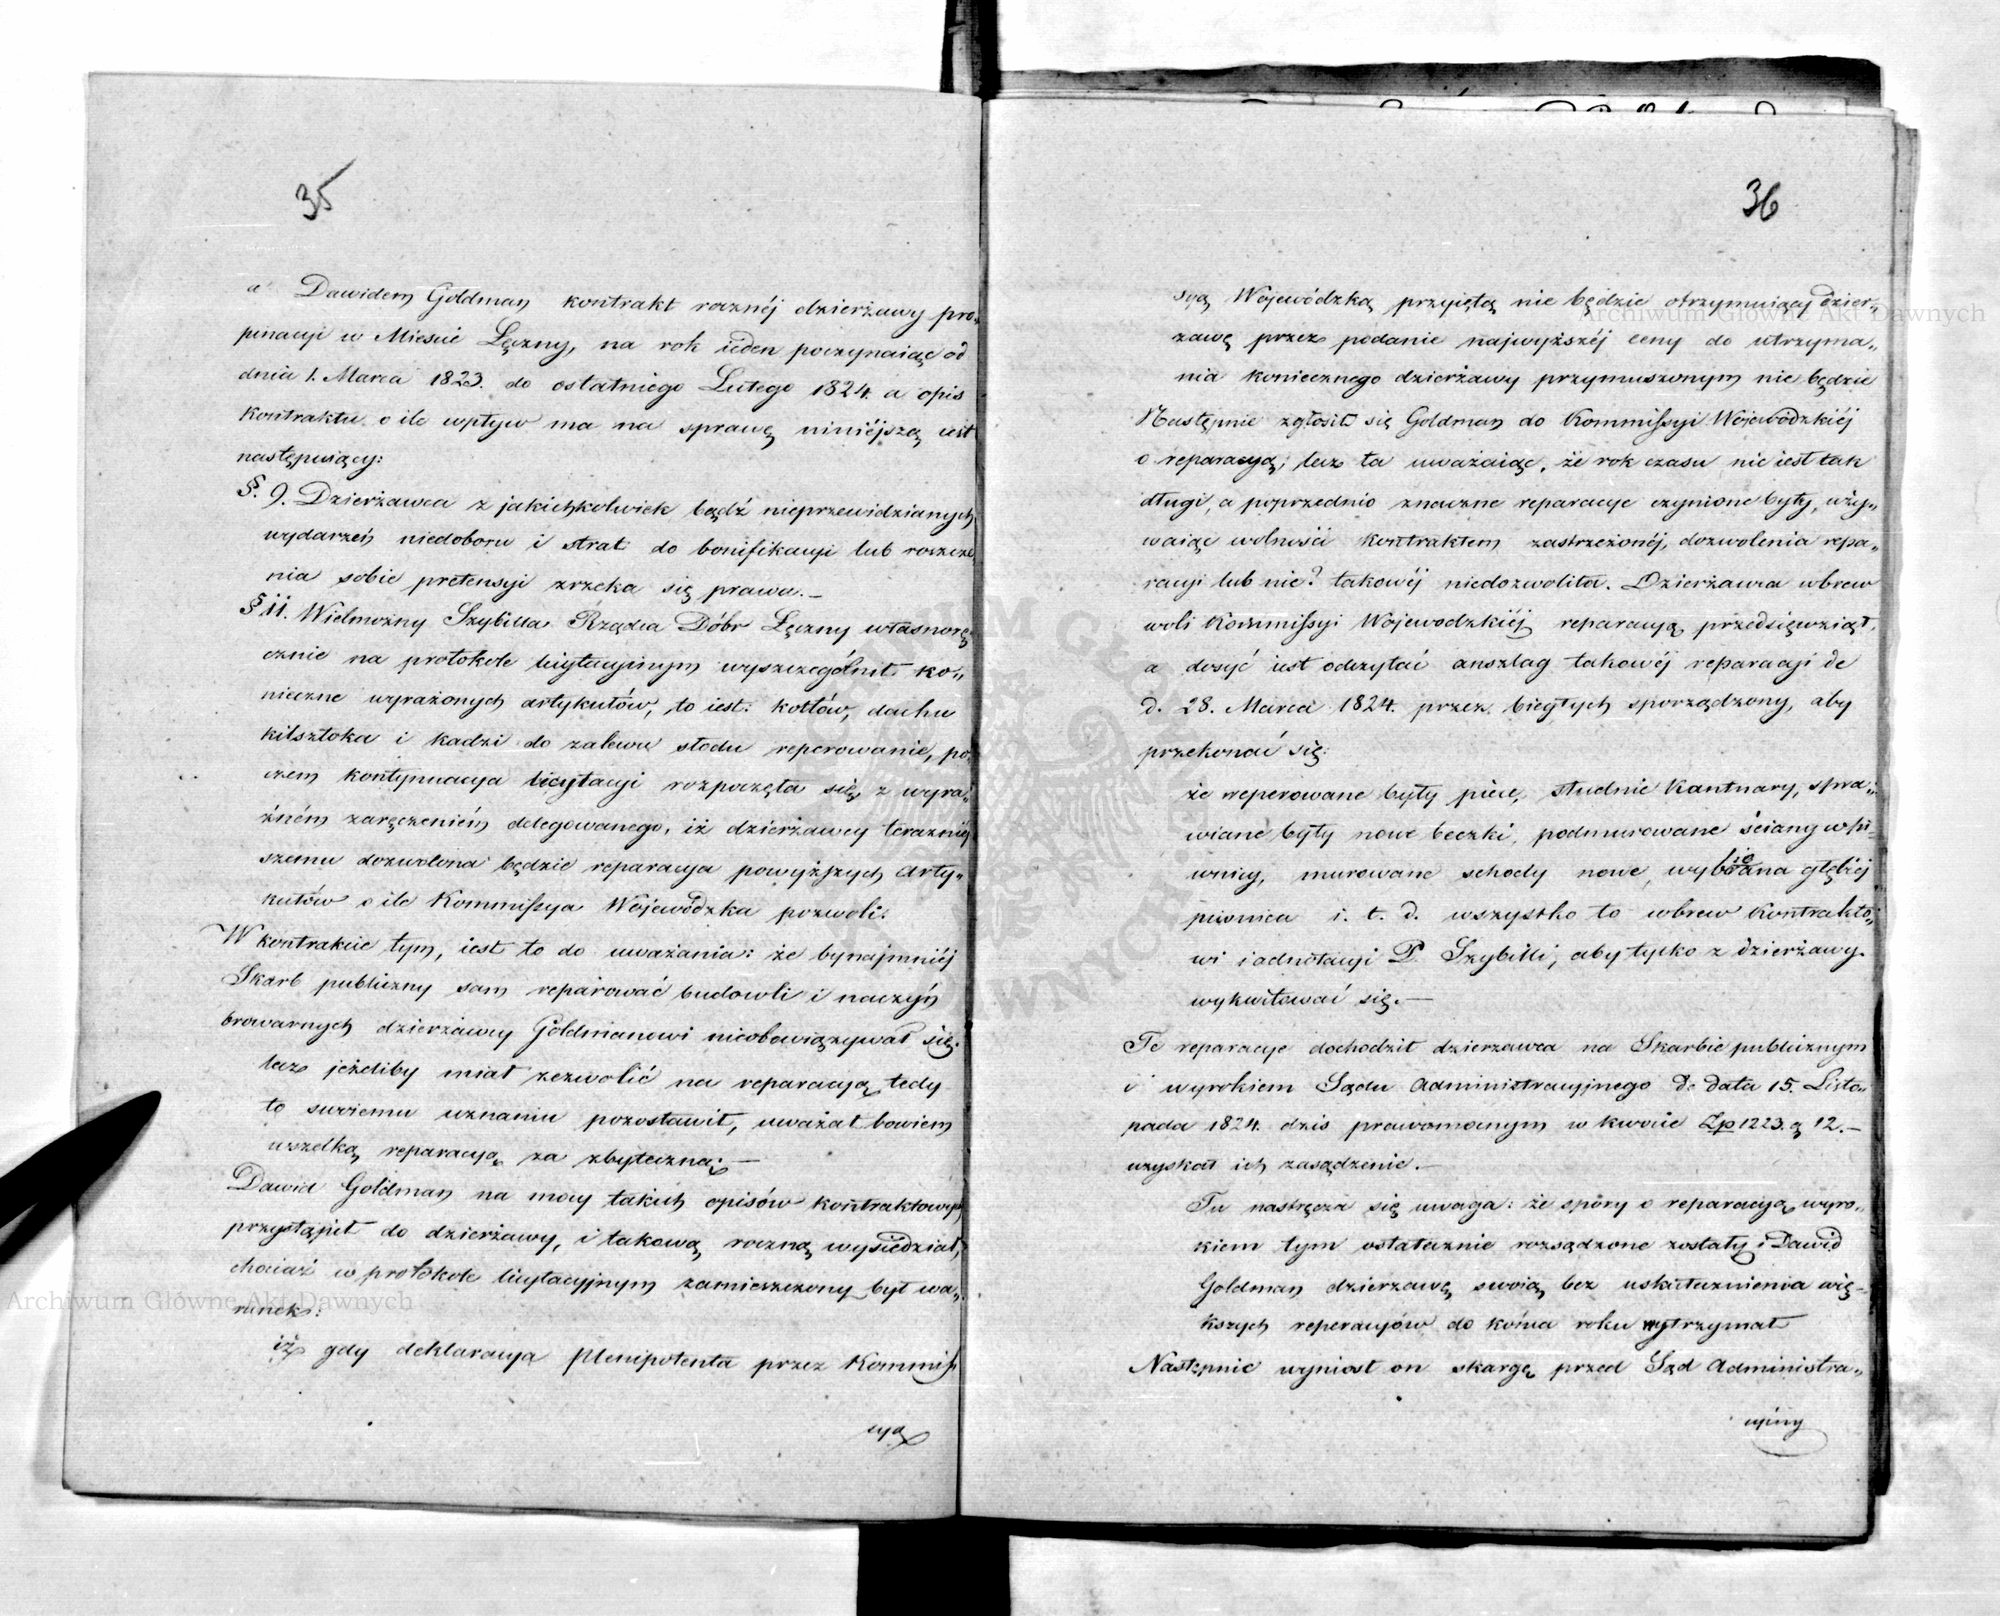 35
a Dawidem Goldman kontrakt rocznéj dzierżawy pro„
pinacyi w Mieście Łęczny, na rok ieden poczynaiąc od
dnia 1. Marca 1823. do ostatniego Lutego 1824. a opis
kontraktu o ile wpływ ma na sprawę niniéjszą iest
następuiący:
§. 9. Dzierżawca z jakichkolwiek bądź nieprzewidzianych
wydarzeń niedoboru i strat do bonifikacyi lub roszcze
nia sobie pretensyi zrzeka się prawa.—
§ 11. Wielmożny Szybilla Rządca Dóbr Łęczny własnorę„
cznie na protokole licytacyinym wyszczególnił ko„
nieczne wyrażonych artykułów, to iest: kotłów, dachu
kilsztoka i kadzi do zalewu słodu reperowanie, po„
czem kontynuacya licytacyi rozpoczęta się z wyra„
źném zaręczeniém delegowanego, iż dzierżawcy teraźniéj
szemu dozwolona będzie reparacya powyższych arty„
kułów o ile Kommissya Wojewódzka pozwoli.
W kontrakcie tym, iest to do uważania: że bynajmniéj
Skarb publiczny sam reparować budowli i naczyń
browarnych dzierżawcy Goldmanowi nieobowiązywał się.
lecz jeżeliby miał zezwolić na reparacyą tedy
to swoiemu uznaniu pozostawił, uważał bowiem
wszelką reparacyą za zbyteczną.—
Dawid Goldman na mocy takich opisów kontraktowych
przystąpił do dzierżawy, i takową roczną wysiedział,
chociaż w protokole licytacyjnym zamieszczony był wa„
runek:
iż gdy deklaracya Plenipotenta przez Kommis
syą
36
syą Wojewódzką przyiętą nie będzie otrzymuiący dzier„
żawę przez podanie najwyższéj ceny do utrzyma„
nia koniecznego dzierżawy przymuszonym nie będzie
Następnie zgłosił się Goldman do Kommissyi Wojewódzkiéj
o reparacyą; lecz ta uważaiąc, że rok czasu nie iest tak
długi, a poprzednio znaczne reparacye czynione były, uży„
waiąc wolności kontraktem zastrzeżonéj, dozwolenia repa„
racyi lub nie? takowéj niedozwoliła. Dzierżawca wbrew
woli Kommissyi Wojewodzkiéj reparacyą przedsięwziął,
a dosyć iest odczytać anszlag takowéj reparacyi de
d. 28. Marca 1824. przez biegłych sporządzony, aby
przekonać się:
że reperowane były piece, studnie Kantnary, spra„
wiane były nowe beczki, podmurowane ściany w pi„
wnicy, murowane schody nowe, wybrana głębiéj
piwnica i. t. d. wszystko to wbrew kontrakto„
wi i adnotacyi P. Szybilli, aby tylko z dzierżawy
wykwitować się.—
Te reparacye dochodził dzierżawca na Skarbie publicznym
i wyrokiem Sądu Administracyjnego de data 15. Listo„
pada 1824. dziś prawomocnym w kwocie Zp 1223. g 12.—
uzyskał ich zasądzenie.—
Tu nastręcza się uwaga: że spóry o reparacyą wyro„
kiem tym ostatecznie rozsądzone zostały i Dawid
Goldman dzierżawę swoią bez uskutecznienia wię„
kszych reperacyów do końca roku wytrzymał
Następnie wyniosł on skargę przed Sąd Administra„
cyiny
Archiwum Główne Akt Dawnych
Archiwum Główne Akt Dawnych